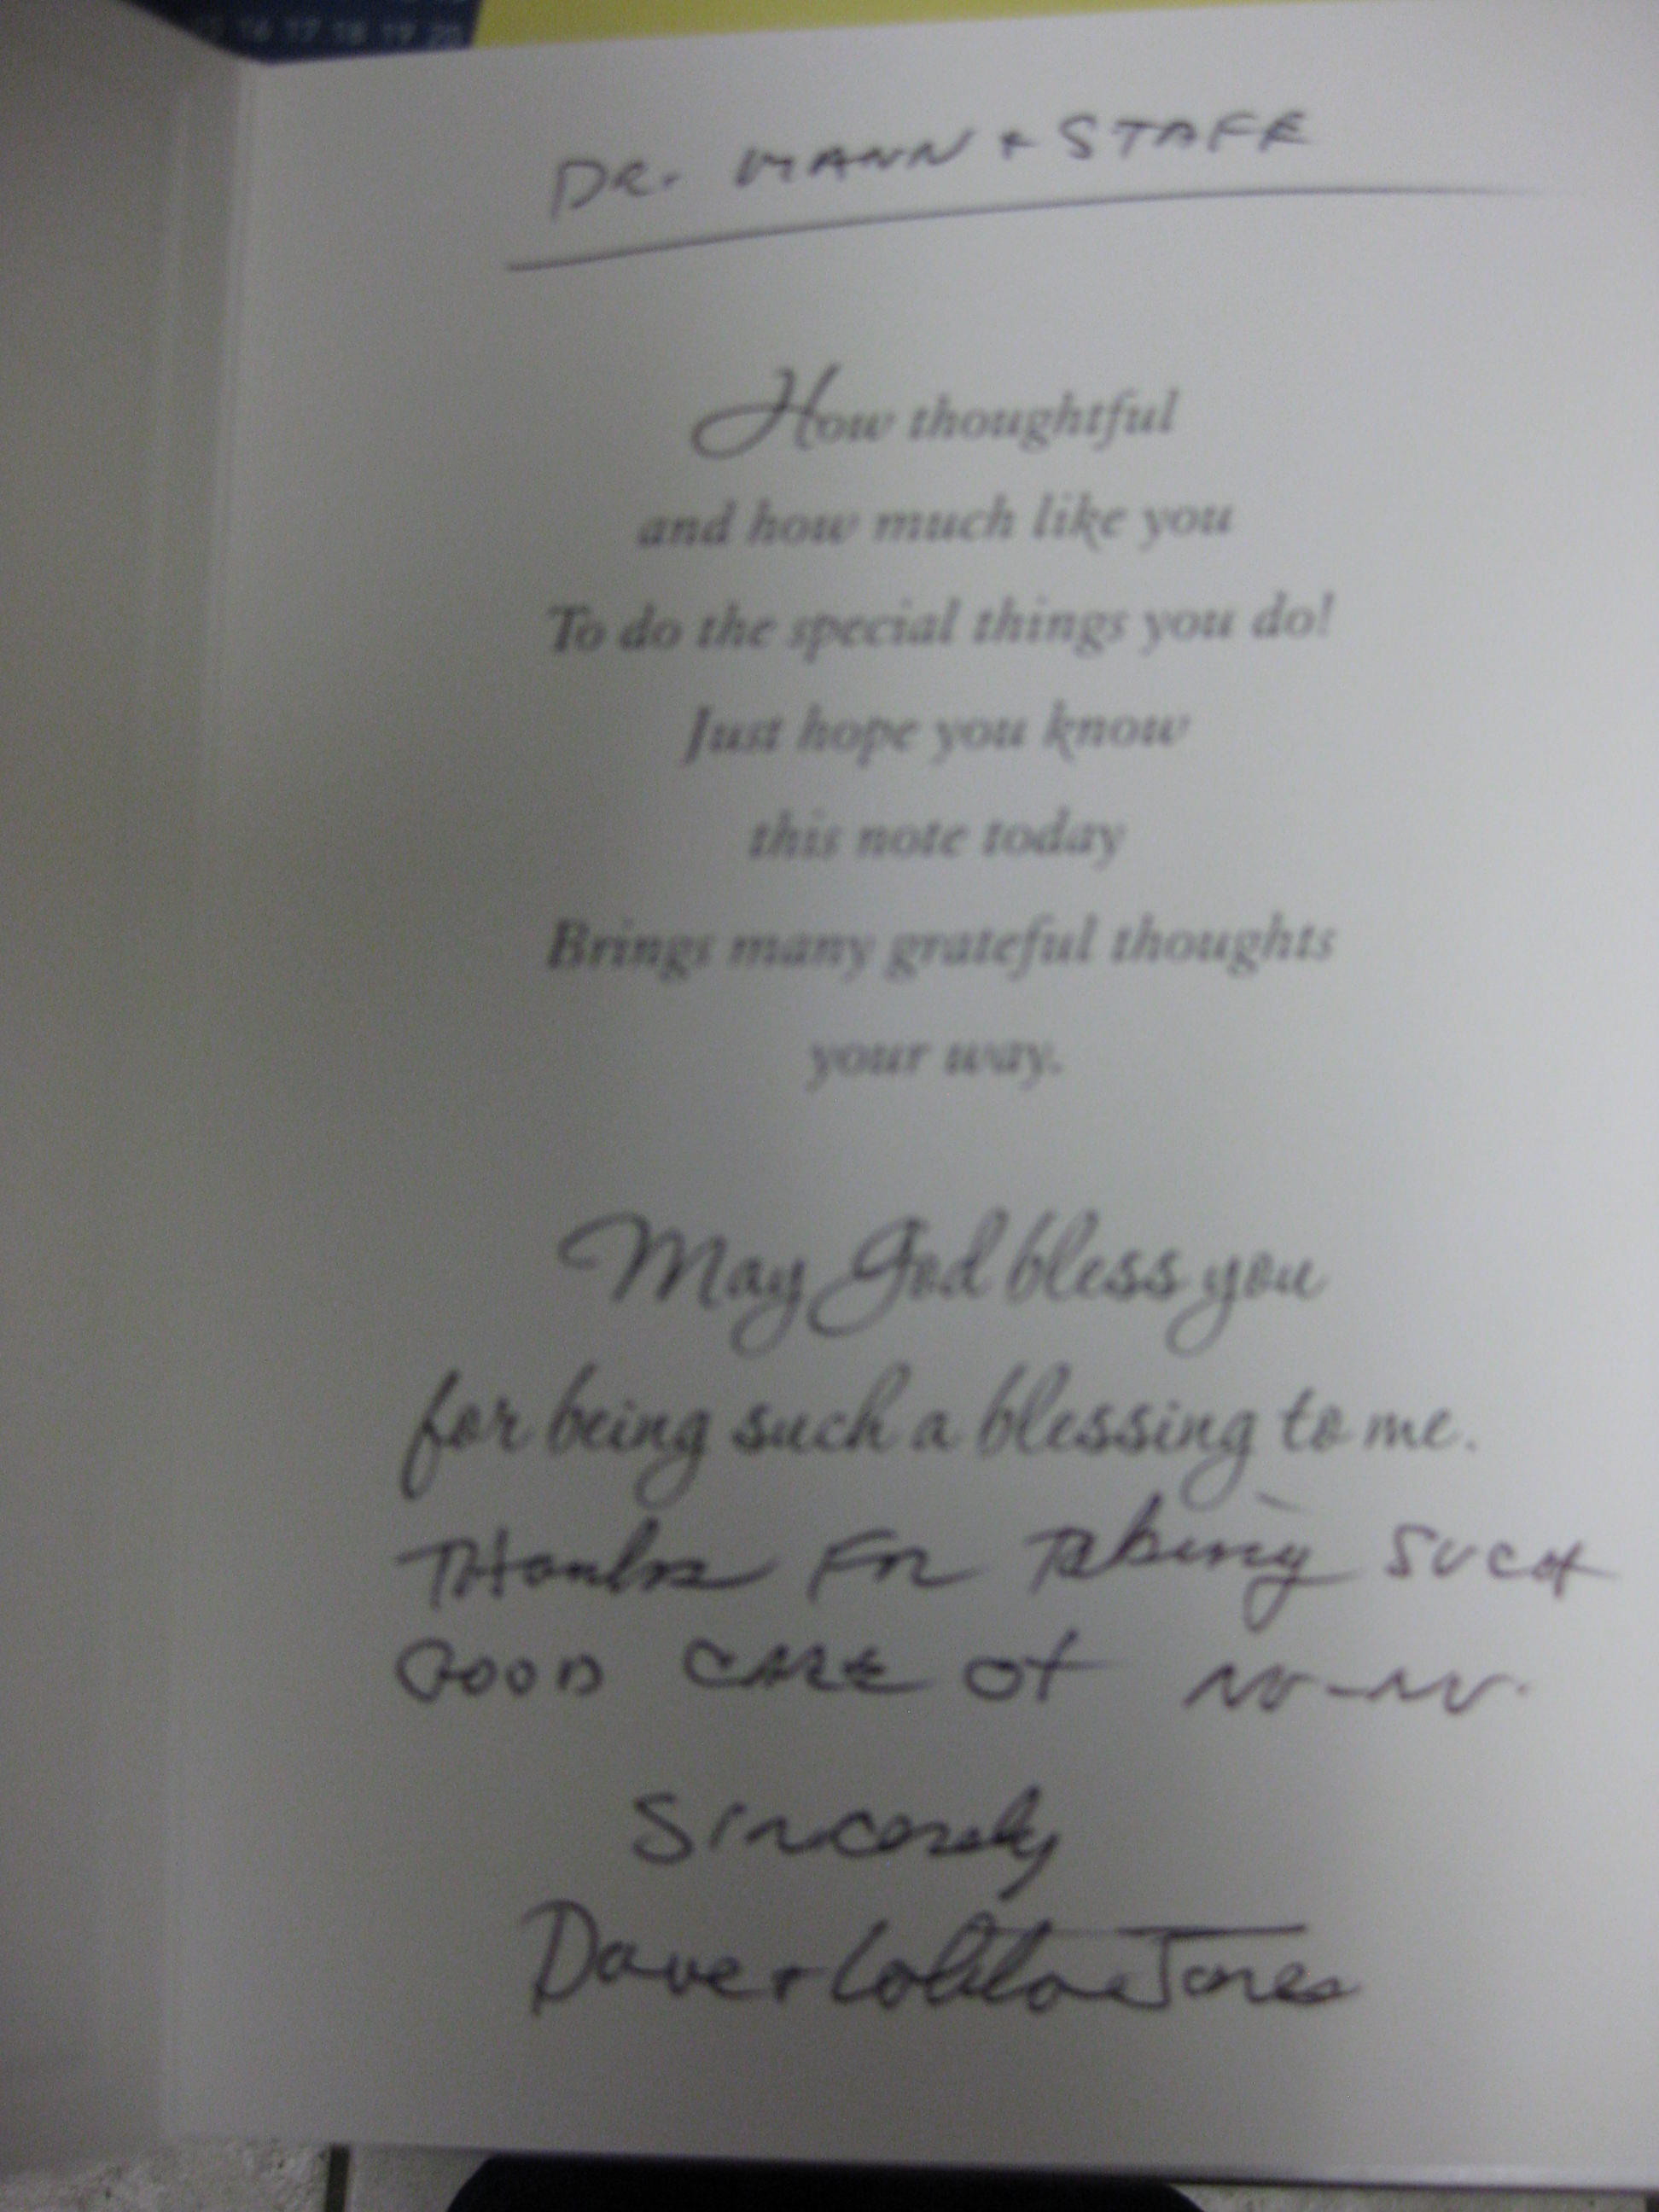 16 17 18 19 20
DR. MANN + STAFF
How thoughtful
and how much like you
To do the special things you do!
Just hope you know
this note today
Brings many grateful thoughts
your way.
May God bless you
for being such a blessing to me.
THanks For Taking SUCH
GOOD CARE of NU-NU.
Sincerely
Dave + Lolita Jones